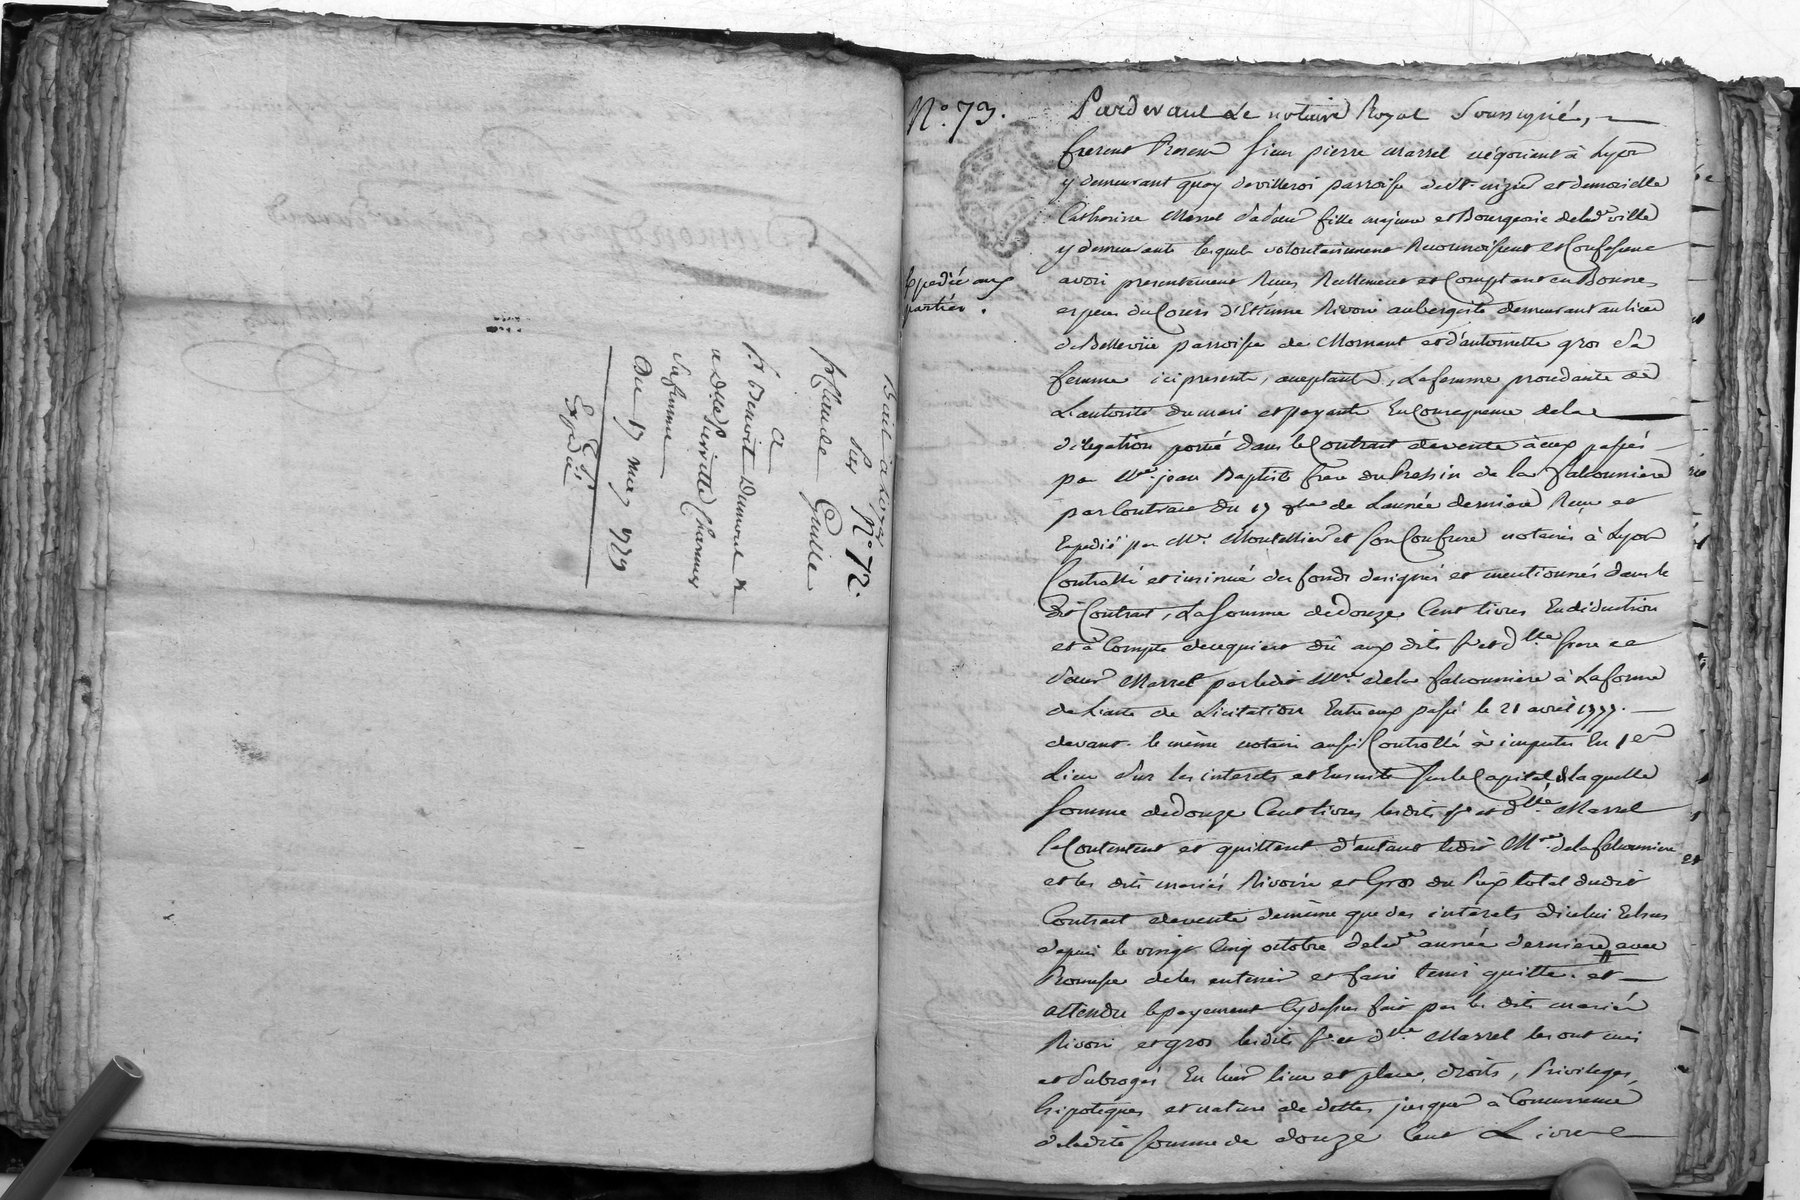 Bail a loyer
sur N.° 72.
Claude Guille
a
S.r benoit Dumont &
a Dlle Pierrette Charmes
sa femme
Du 17 may 1779
Exp.dié
N.° 73.
Expedié aux
parties.
Pardevant Le notaire Royal Soussigné,
furent Present sieur pierre Marrel négociant à Lyon
y demeurant quay de villeroi parroisse de St. nizier et demoiselle
Catherine Marrel sa sœur fille majeure et Bourgeoise de lad.e ville
y demeurante lesquels volontairement Reconnoissent et Confessent
avoir presentement Reçus Reellement et Comptant en Bonnes
especes du Cours d'Etienne Rivoire aubergiste demeurant au lieu
de Bellevüe parroisse de Mornant et d'antoinette gros sa
femme ici presents, acceptants, La femme procedante de
L'autorité du mari et payants En Consequence de la
délegation portée dans le Contrat de vente à eux passée
par Mre. jean Baptiste frere du Pressin de la falconniere
par Contract du 17 8bre de L'année derniere Reçu et
Expedié par Me. Montellier et son Confrere notaires à Lyon
Controllé et insinué des fonds designés et mentionnés dans le
dit Contrat, La Somme de douze Cent livres En déduction
et à Compte de ce qui est dû aux dits Sr et Dlle frere et
sœur Marrel par ledit Mre de la falconniere à La forme
de L'acte de Licitation Entre eux passé le 21 avril 1777.
devant le même notaire aussi Controllé à imputer En 1er
Lieu sur les interets et Ensuite sur le Capital de laquelle
Somme de douze Cent livres lesdits Sr et Dlle. Marrel
se Contentent et quittent d'autant ledit Mre. de la falconniere et
et les dits mariés Rivoire et Gros du Prix total dudit
Contrat de vente de même que des interets d'icelui Echus
depuis le vingt Cinq octobre de lad.e année derniere avec
Promesse de les en tenir et faire tenir quitte. et
attendu le payement cy dessus fait par les dits mariés
Rivoire et gros lesdits Sr. et Dlle. Marrel les ont mis
et subrogés En leur lieu et place, droits, Privileges
hipoteques et nature de dettes jusques à Concurrence
de ladite somme de douze Cent Livres